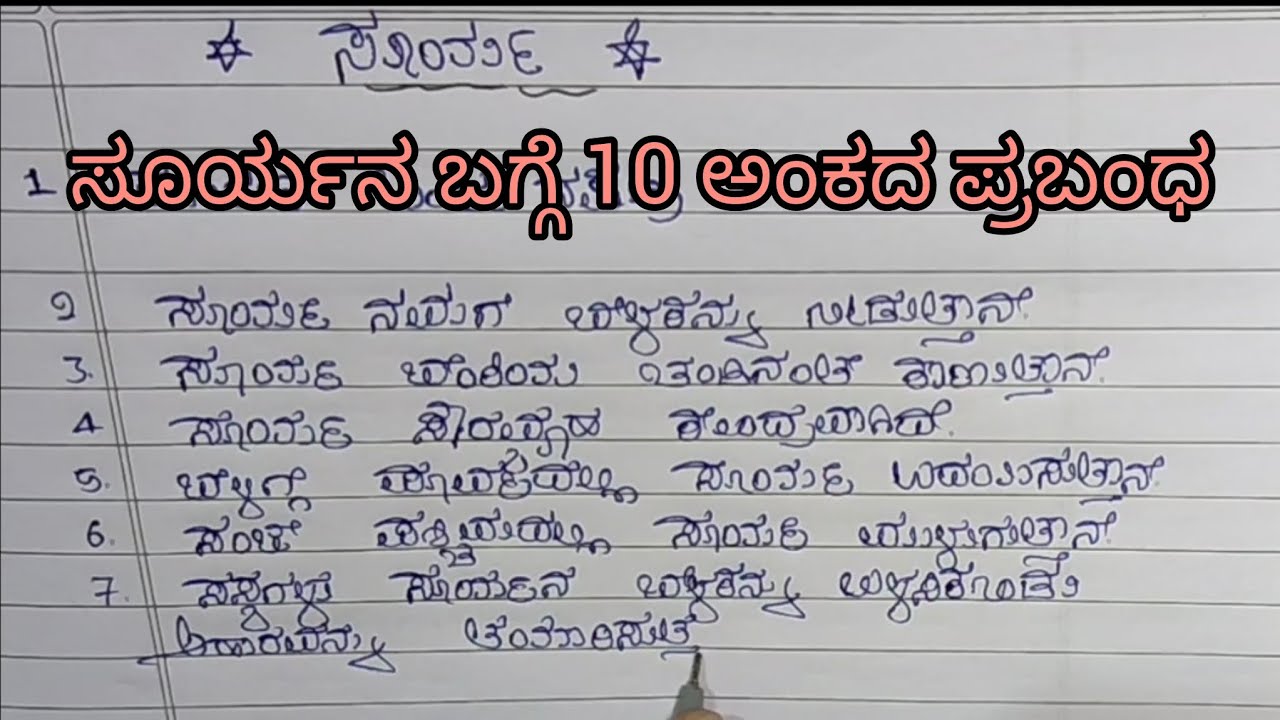 ಸೂರ್ಯ
ಸೂರ್ಯನ ಬಗ್ಗೆ 10 ಅಂಕದ ಪ್ರಬಂಧ
1
2 ಸೂರ್ಯ ನಮಗೆ ಬೆಳಕನ್ನು ನೀಡುತ್ತಾನೆ.
3. ಸೂರ್ಯ ಬೆಂಕಿಯ ಚೆಂಡಿನಂತೆ ಕಾಣುತ್ತಾನೆ.
4 ಸೂರ್ಯ ಸೌರವ್ಯೂಹ ಕೇಂದ್ರವಾಗಿದೆ.
5. ಬೆಳಗ್ಗೆ ಪೂರ್ವದಲ್ಲಿ ಸೂರ್ಯ ಉದಯಿಸುತ್ತಾನೆ.
6. ಸಂಜೆ ಪಶ್ಚಿಮದಲ್ಲಿ ಸೂರ್ಯ ಮುಳುಗುತ್ತಾನೆ.
7. ಸಸ್ಯಗಳು ಸೂರ್ಯನ ಬೆಳಕನ್ನು
ಆಹಾರವನ್ನು ತಯಾರಿಸುತ್ತ